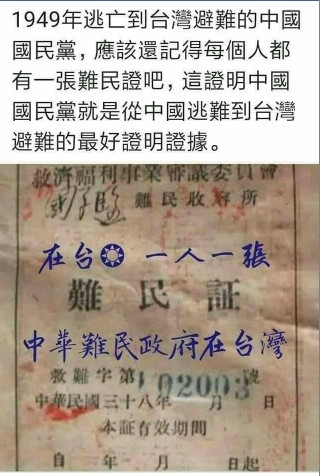 1949年逃亡到台灣避難的中國
國民黨，應該還記得每個人都
有一張難民證吧，這證明中國
國民黨就是從中國逃難到台灣
避難的最好證明證據。
救濟福利事業審議委員會
難民收容所
在台 一人一張
難民証
中華難民政府在台灣
救難字第102003號
中華民國三十八年 月 日
本証有效期間
自 年 月 日起